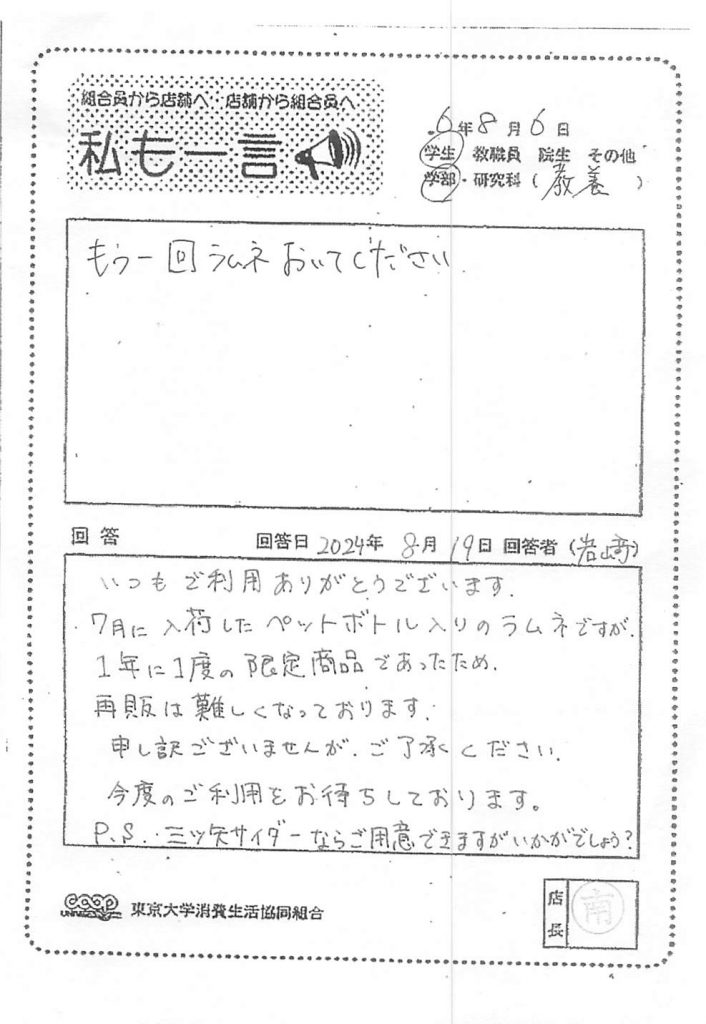 組合員から店舗へ・店舗から組合員へ
私も一言
6年8月6日
学生 教職員 院生 その他
学部・研究科(教養)
もう一回ラムネおいてください.
回答
回答日 2024年 8月 19日 回答者(岩崎)
いつもご利用ありがとうございます.
7月に入荷したペットボトル入りのラムネですが.
1年に1度の限定商品であったため.
再販は難しくなっております.
申し訳ございませんが.ご了承ください.
今度のご利用をお待ちしております。
P.S. 三ツ矢サイダーならご用意できますがいかがでしょう?
coop
UNIVERSITY
東京大学消費生活協同組合
店長
南